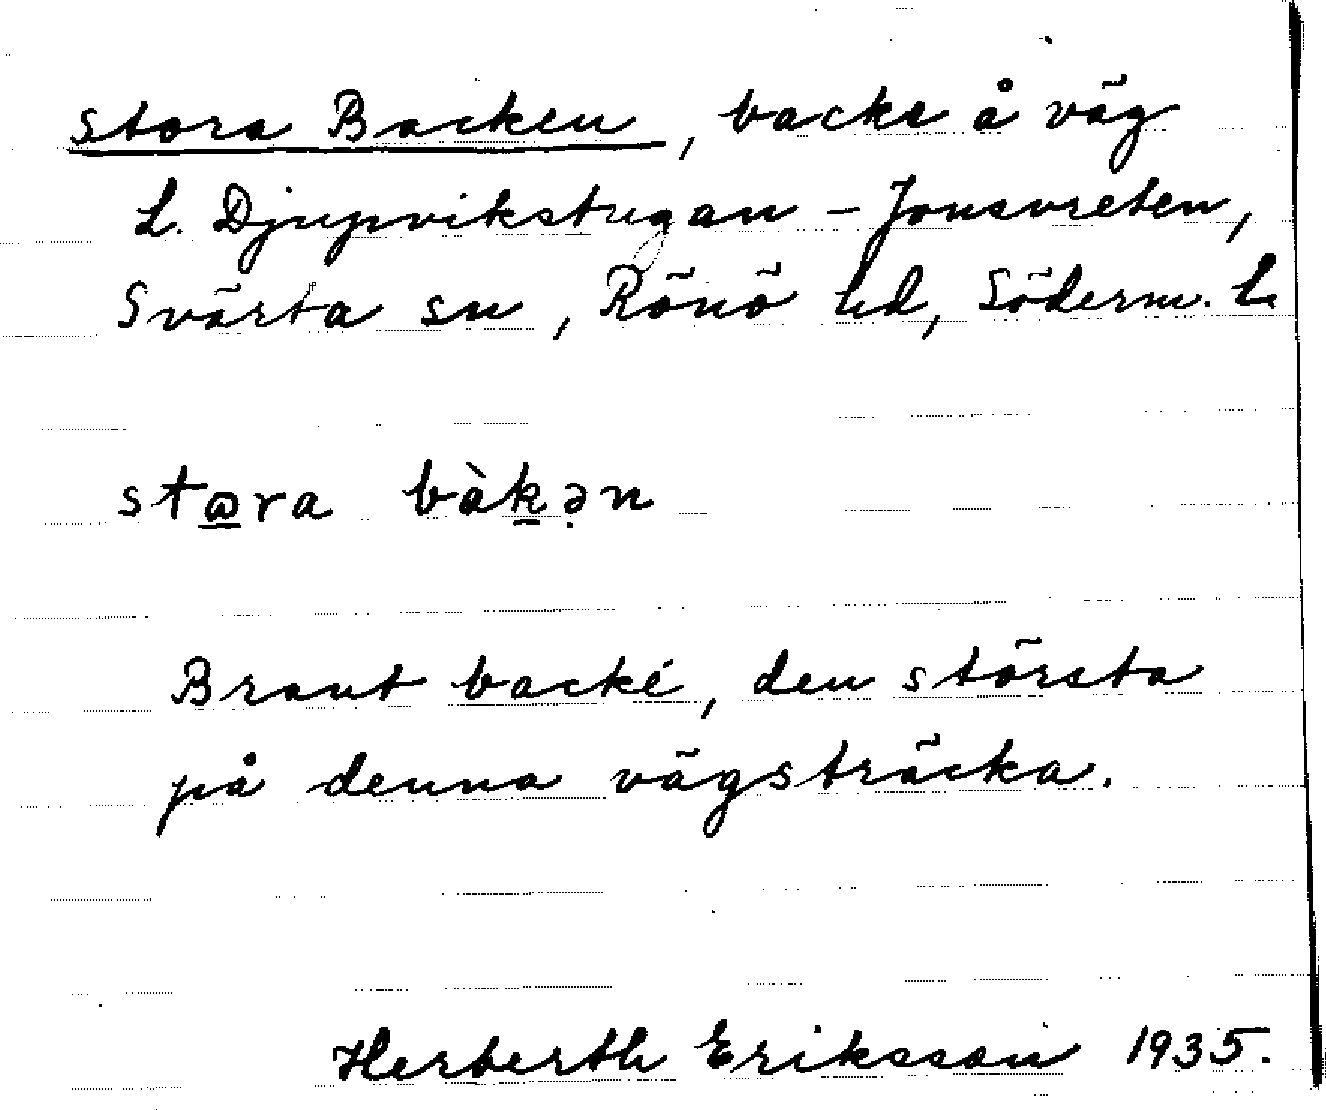 stora Backen, backe å väg
L. Djupvikstugan – Jonsvreten,
Svärta sn, Rönö hd, Söderm. L.
stⱺra bàk̲ə̣n
Brant backe, den största
på denna vägsträcka.
Herberth Eriksson 1935.